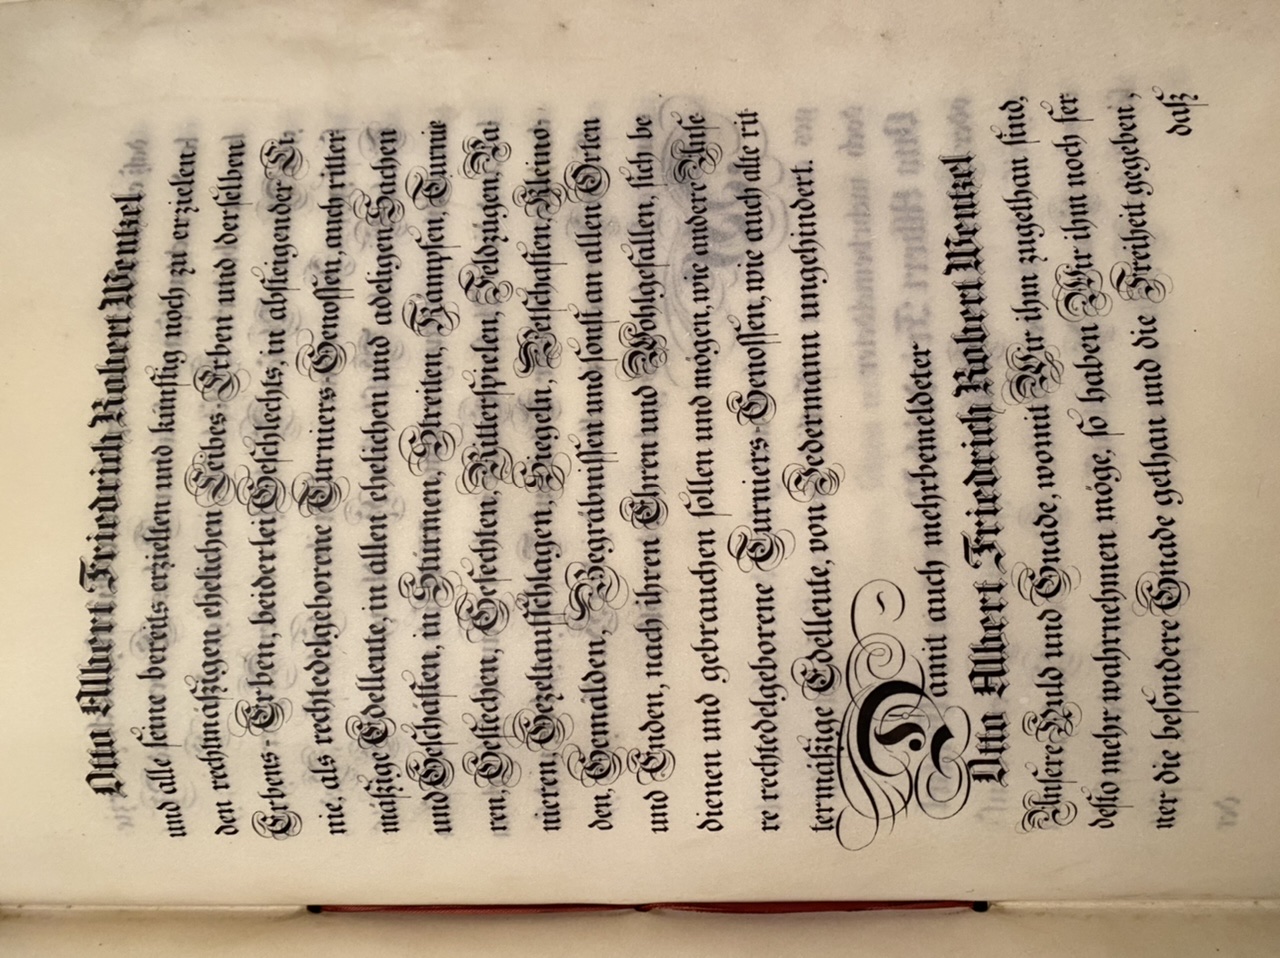 Otto Albert Friedrich Robert Wentzel
und alle seine bereits erzielten und künftig noch zu erzielen-
den rechtmäßigen ehelichen Leibes-Erben und derselben
Erbens-Erben, beiderlei Geschlechts, in absteigender Li-
nie, als rechtedelgeborene Turniers-Genossen, auch ritter
mäßige Edelleute, in allen ehelichen und adeligen Sachen
und Geschäften, in Stürmen, Streiten, Kämpfen, Turnie
ren, Gestechen, Gefechten, Ritterspielen, Feldzügen, Pa
nieren, Gezeltaufschlagen, Siegeln, Petschaften, Kleino-
den, Gemälden, Begräbnissen und sonst an allen Orten
und Enden, nach ihren Ehren und Wohlgefallen, sich be
dienen und gebrauchen sollen und mögen, wie andere Unse
re rechtedelgeborene Turniers-Genossen, wie auch alte rit-
termäßige Edelleute, von Jedermann ungehindert.
Damit auch mehrbemeldeter
Otto Albert Friedrich Robert Wentzel
Unsere Huld und Gnade, womit Wir ihm zugethan sind,
desto mehr wahrnehmen möge, so haben Wir ihm noch fer
ner die besondere Gnade gethan und die Freiheit gegeben,
daß